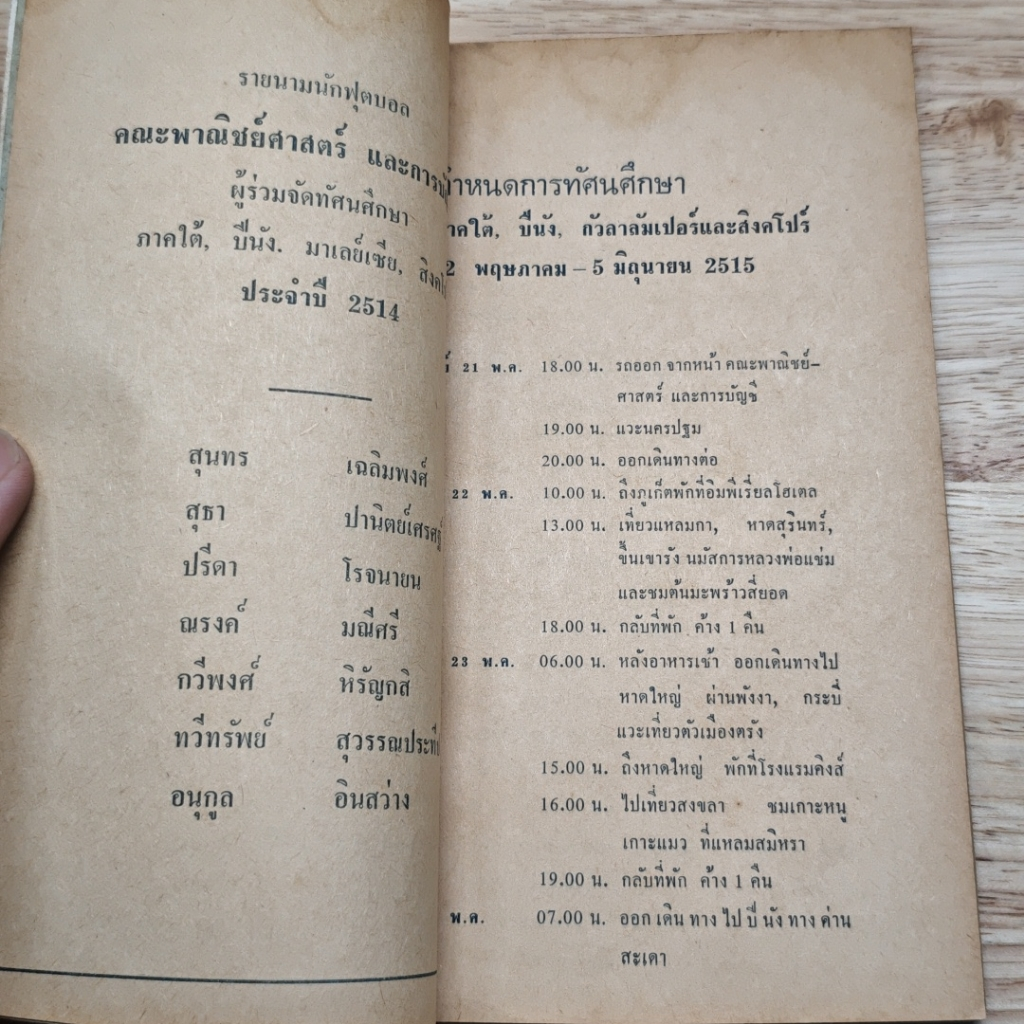 รายนามนักฟุตบอล
คณะพาณิชย์ศาสตร์ และการ
ผู้ร่วมจัดทัศนศึกษา
ภาคใต้, ปีนัง. มาเลย์เซีย,
ประจำปี 2514
สุนทร เฉลิมพงศ์
สุธา ปานิตย์เศรษฐ์
ปรีดา โรจนายน
ณรงค์ มณีศรี
กวีพงศ์ หิรัญกสิ
ทวีทรัพย์
อนุกูล อินสว่าง
กำหนดการทัศนศึกษา
ภาคใต้, ปีนัง, กัวลาลัมเปอร์และสิงคโปร์
พฤษภาคม – 5 มิถุนายน 2515
21 พ.ค. 18.00 น. รถออก จากหน้า คณะพาณิชย์–
ศาสตร์ และการบัญชี
19.00 น. แวะนครปฐม
20.00 น. ออกเดินทางต่อ
22 พ.ค. 10.00 น. ถึงภูเก็ตพักที่อิมพีเรี่ยลโฮเตล
13.00 น. เที่ยวแหลมกา, หาดสุรินทร์,
ขึ้นเขารัง นมัสการหลวงพ่อแช่ม
และชมต้นมะพร้าวสี่ยอด
18.00 น. กลับที่พัก ค้าง 1 คืน
23 พ.ค. 06.00 น. หลังอาหารเช้า ออกเดินทางไป
หาดใหญ่ ผ่านพังงา, กระบี่
แวะเที่ยวตัวเมืองตรัง
15.00 น. ถึงหาดใหญ่ พักที่โรงแรมคิงส์
16.00 น. ไปเที่ยวสงขลา ชมเกาะหนู
เกาะแมว ที่แหลมสมิหรา
19.00 น. กลับที่พัก ค้าง 1 คืน
พ.ค. 07.00 น. ออก เดิน ทาง ไป ปี นัง ทาง ด่าน
สะเดา